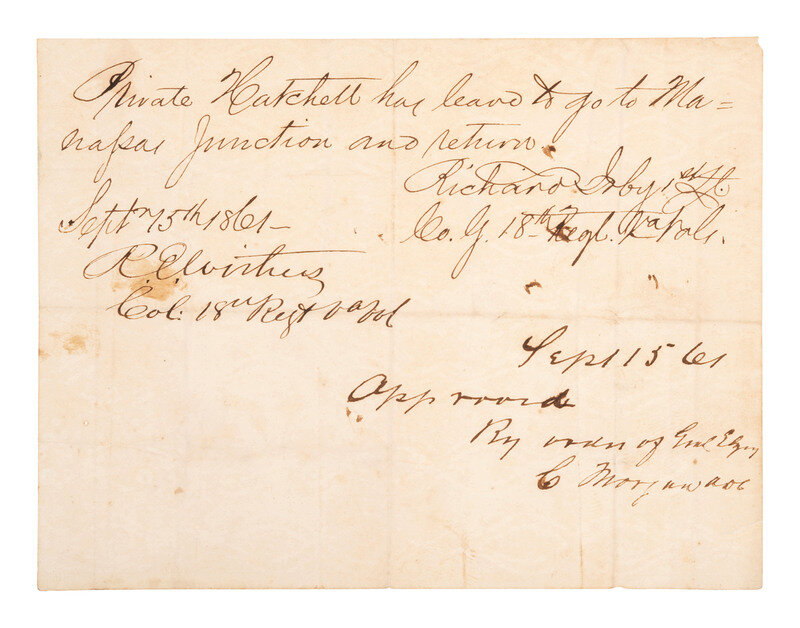 Private Hatchett has leave to go to Ma=
nassas Junction and return.
Richard Irby 1st Lt.
Sept 15th 1861
Co. G. 18th Regt. Va Vols.
R. E. Withers
Col: 18th Regt Va Vol
Sept 15 61
Approved
By order of Genl
C Morgan ADC